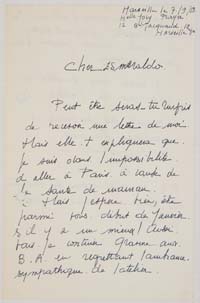 Marseille le 7/9/82
Marseille
Cher Esmeraldo
Peut être seras tu surpris
de recevoir une lettre de moi
Mais elle t expliquera que
je suis dans l'impossibilité
d aller à Paris à cause de
la santé de maman.
Mais j'espère bien être
parmi vous début de Janvier
s il y a un mieux
mais je continue gravure aux
B.A. en regrettant l'ambiance
sympathique de l'atelier